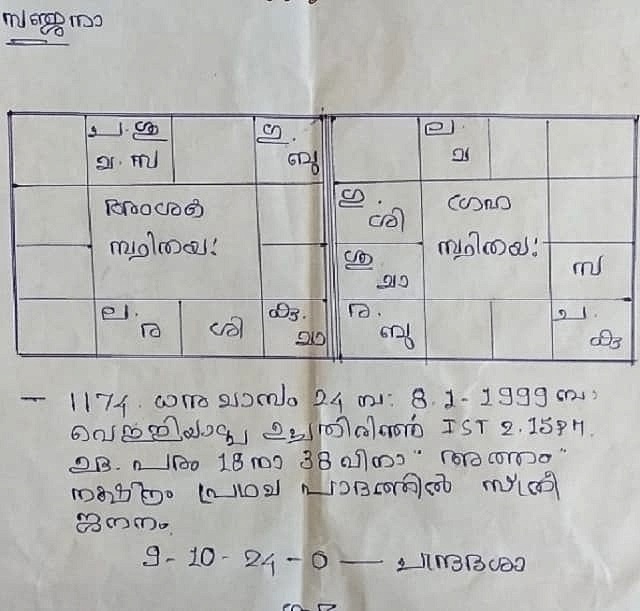 സഞ്ജനാ
ച. ശു
മ. സ
ഗു.
ബു
ല.
മ
അംശക
സ്ഥിതയഃ
ഗു.
ശി
ഗ്രഹ
സ്ഥിതയഃ
ശു
മാ
സ
ല.
ര
ശി
കു.
മാ
ര.
ബു
ച.
കു
— 1174. ധനു മാസം 24 നു: 8.1-1999 നു
വെള്ളിയാഴ്ച ഉച്ചതിരിഞ്ഞ് IST 2.15PM.
ഉദ. പരം 18 നാ 38 വിനാ "അത്തം"
നക്ഷത്രം പ്രഥമ പാദത്തിൽ സ്ത്രീ
ജനനം.
9-10-24-0 — ചന്ദ്രദശാ